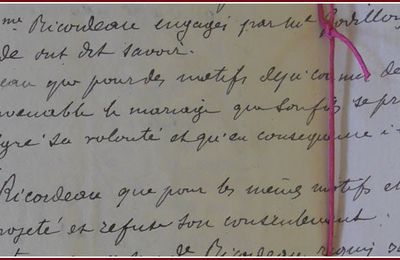 me Ricordeau engagés par Me Bodillon
de ont dit savoir.
eau que pour des motifs déjà connus de
venable le mariage que son fils se pro
lgré sa volonté et qu'en conséquence i
Ricordeau que pour les mêmes motifs el
projeté et refuse son consentement.
de Ricordeau requis